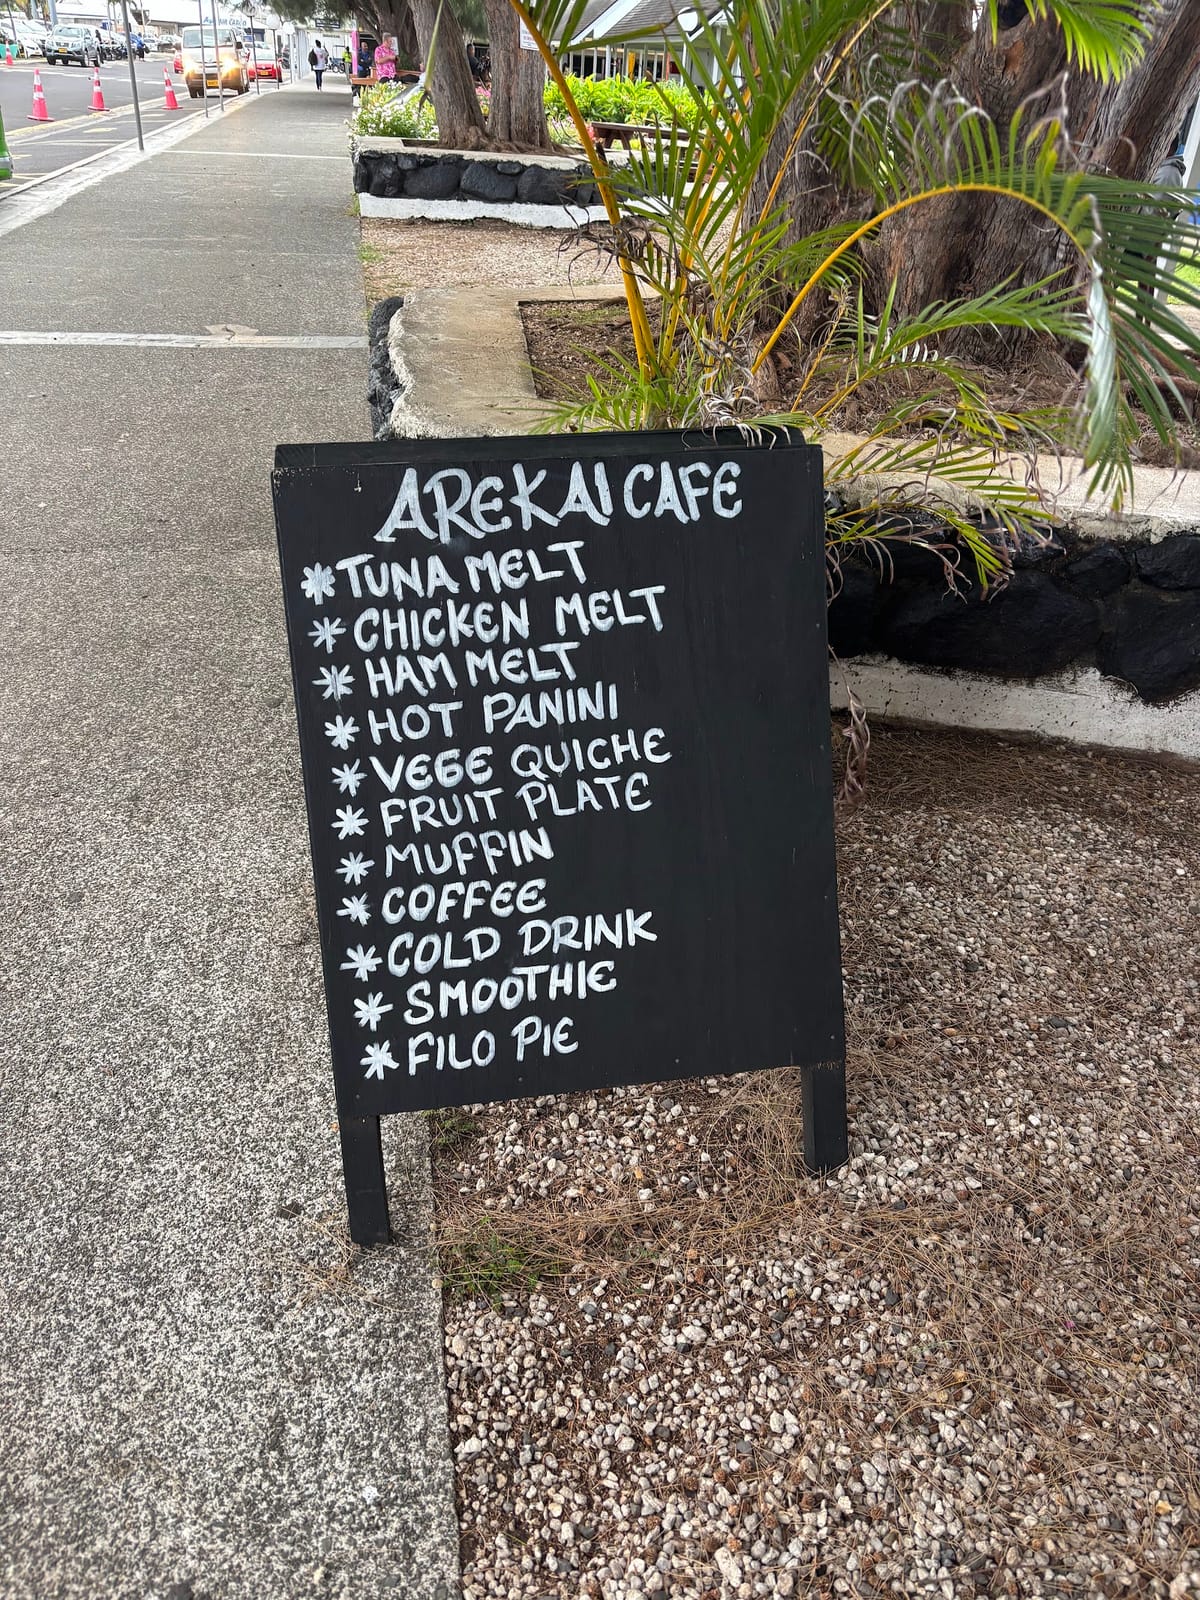 AREKAI CAFE
* TUNA MELT
* CHICKEN MELT
* HAM MELT
* HOT PANINI
* VEGE QUICHE
* FRUIT PLATE
* MUFFIN
* COFFEE
* COLD DRINK
* SMOOTHIE
* FILO PIE